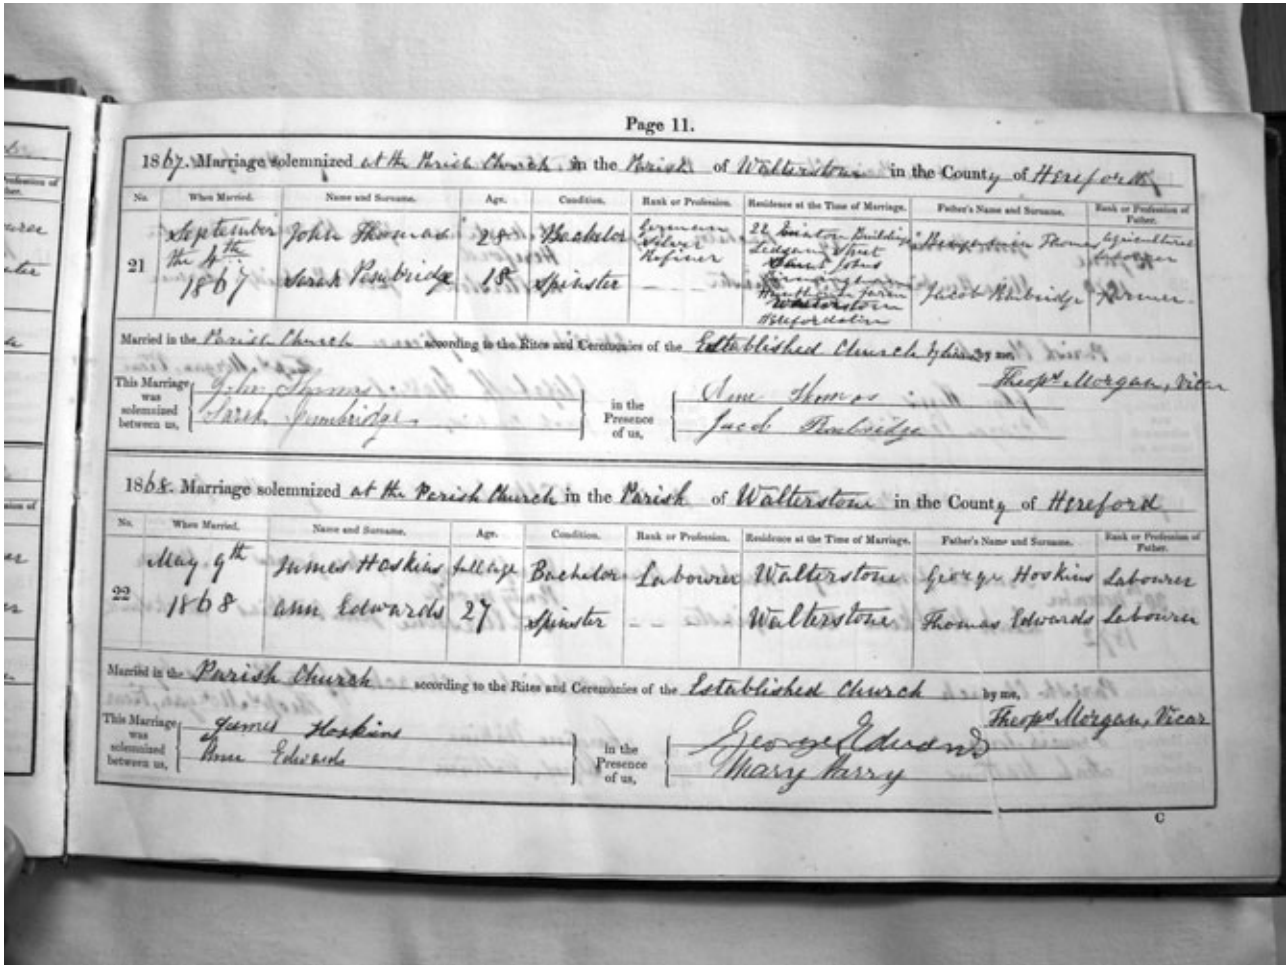 Page 11.
1867. Marriage solemnized at the Parish Church in the Parish of Walterstone in the County of Hereford
No. When Married. Name and Surname. Age. Condition. Rank or Profession. Residence at the Time of Marriage. Father's Name and Surname. Rank or Profession of Father.
21 September the 4th 1867
John Thomas 28 Bachelor German Silver Refiner 22 Buildings Street Saint Johns Thomas Agricultural Labourer
Sarah Pembridge 18 Spinster - - Farm Walterstone Herefordshire Jacob Pembridge Farmer
Married in the Parish Church according to the Rites and Ceremonies of the Established Church by me,
Theops Morgan, Vicar
This Marriage was solemnized between us, John Thomas Sarah Pembridge in the Presence of us, Ann Thomas Jacob Pembridge
1868. Marriage solemnized at the Parish Church in the Parish of Walterstone in the County of Hereford
No. When Married. Name and Surname. Age. Condition. Rank or Profession. Residence at the Time of Marriage. Father's Name and Surname. Rank or Profession of Father.
22 May 9th 1868
James Hoskins full age Bachelor Labourer Walterstone George Hoskins Labourer
Ann Edwards 27 Spinster - - Walterstone Thomas Edwards Labourer
Married in the Parish Church according to the Rites and Ceremonies of the Established Church by me,
Theops Morgan, Vicar
This Marriage was solemnized between us, James Hoskins Ann Edwards in the Presence of us, George Edwards Mary Harry
C